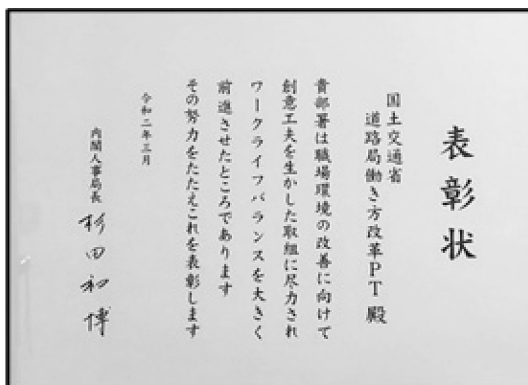 表彰状
国土交通省
道路局働き方改革PT 殿
貴部署は職場環境の改善に向けて
創意工夫を生かした取組に尽力され
ワークライフバランスを大きく
前進させたところであります
その努力をたたえこれを表彰します
令和二年三月
内閣人事局長 杉田和博